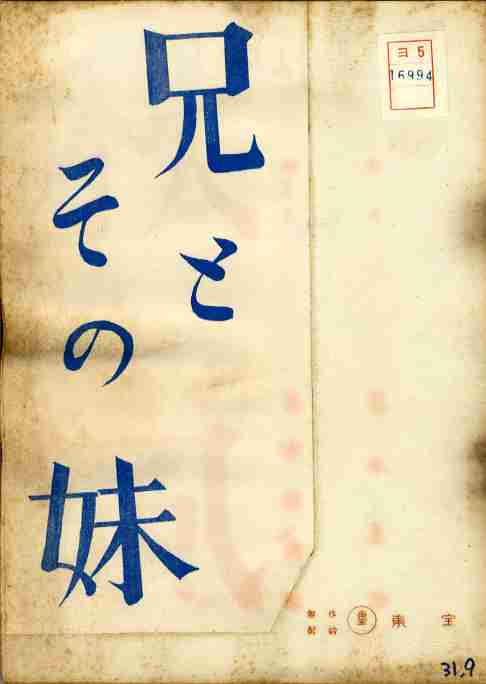 兄と
その
妹
ヨ5
16994
東宝
31,9